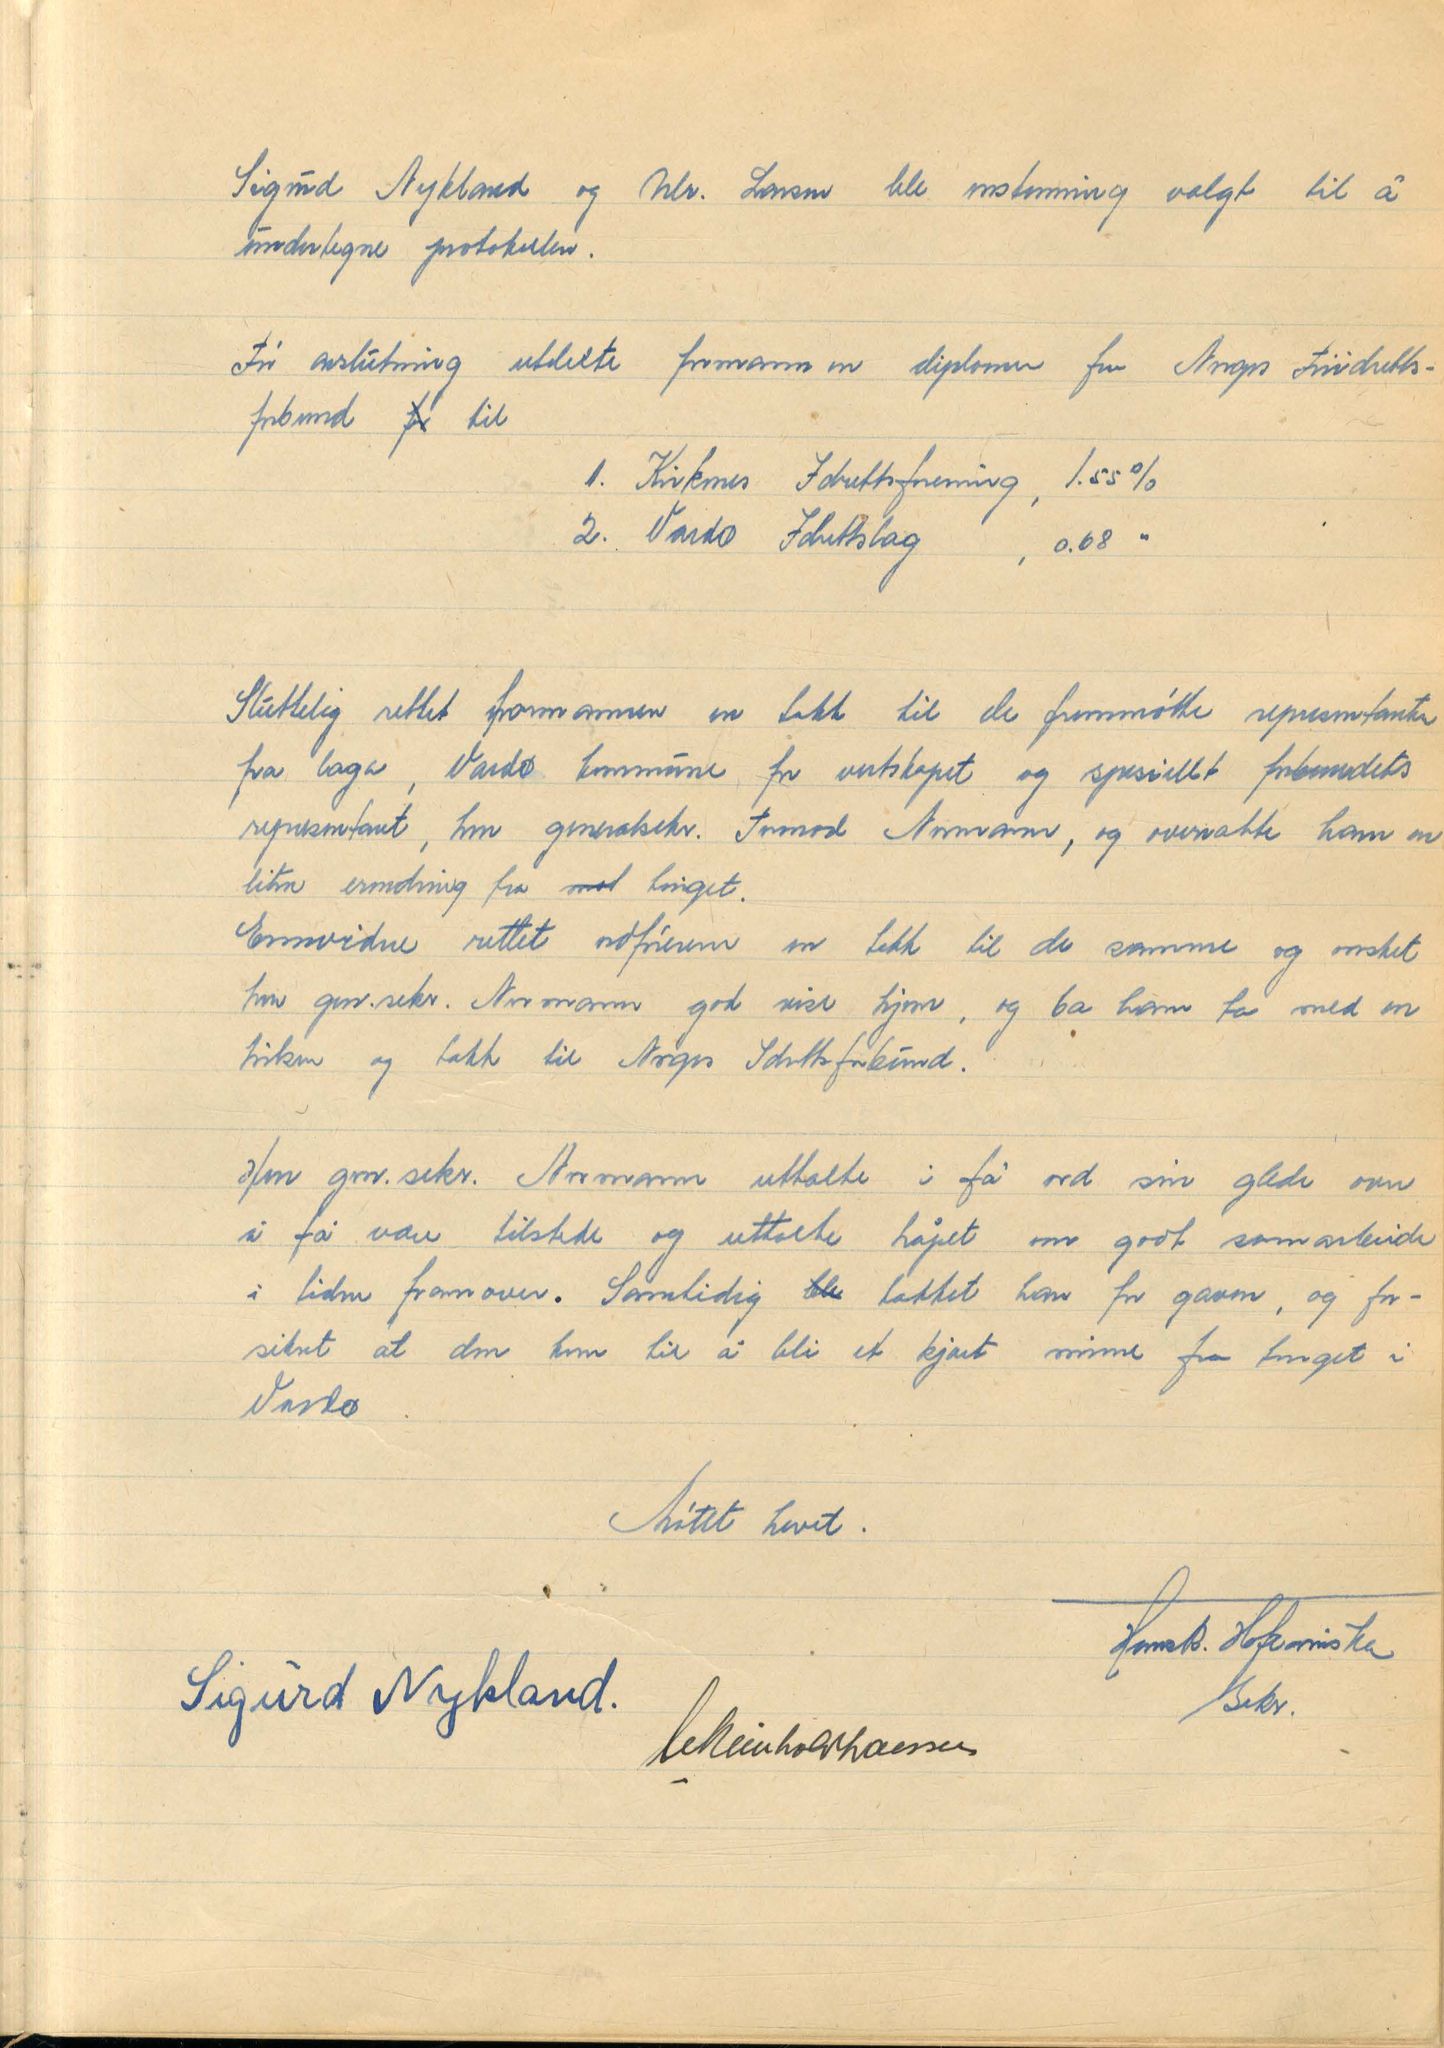 Sigurd Nykland og Ulr. Larsen ble enstemmig valgt til å
undertegne protokollen.
Før avslutning utdelte formannen diplomer fra Norges Friidretts-
forbund til
1. Kirkenes Idrettsforening, 1.55 %
2. Vardø Idrettslag, 0.68 "
Sluttelig rettet formannen en takk til de frammøtte representanter
fra laga, Vardø kommune for vertskapet og spesiellt forbundets
representant, herr generalsekr. Tormod Normann, og overrakte ham en
liten erindring fra tinget.
Ennvidere rettet ordføreren en takk til de samme og ønsket
herr gen.sekr. Normann god reise hjem, og ba ham ta med en
hilsen og takk til Norges Idrettsforbund.
Herr gen.sekr. Normann uttalte i få ord sin glede over
å få være tilstede og uttalte håpet om godt samarbeide
i tiden framover. Samtidig takket han for gaven, og for-
sikret at den kom til å bli et kjært minne fra tinget i
Vardø
Møtet hevet.
Sekr.
Sigurd Nykland.